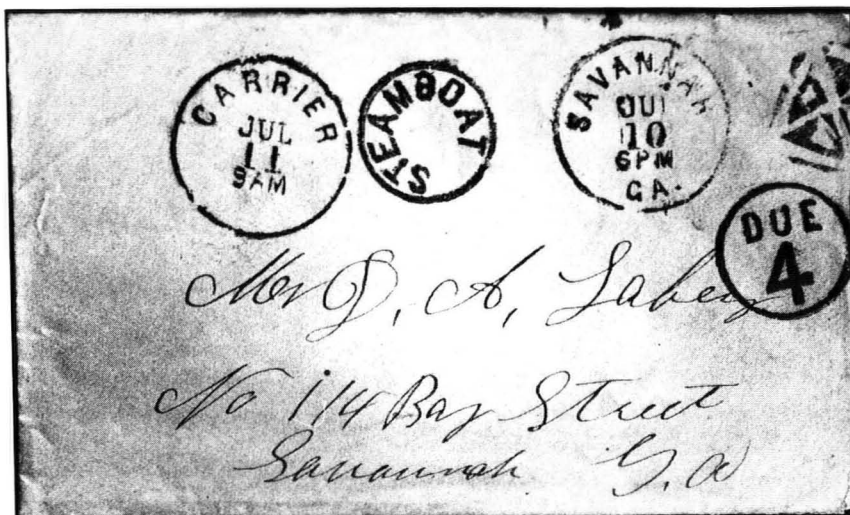 CARRIER
JUL
11
9AM
STEAMBOAT
SAVANNAH
JUL
10
6PM
GA.
DUE
4
Mr D. A,
No 114 Bay Street
Savannah G.a